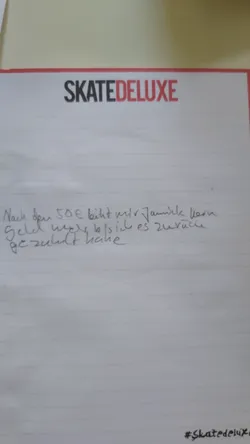 SKATEDELUXE
Nach den 50€ leiht mir Jannik kein
Geld mehr bis ich es zurück
gezahlt habe
#skatedelux